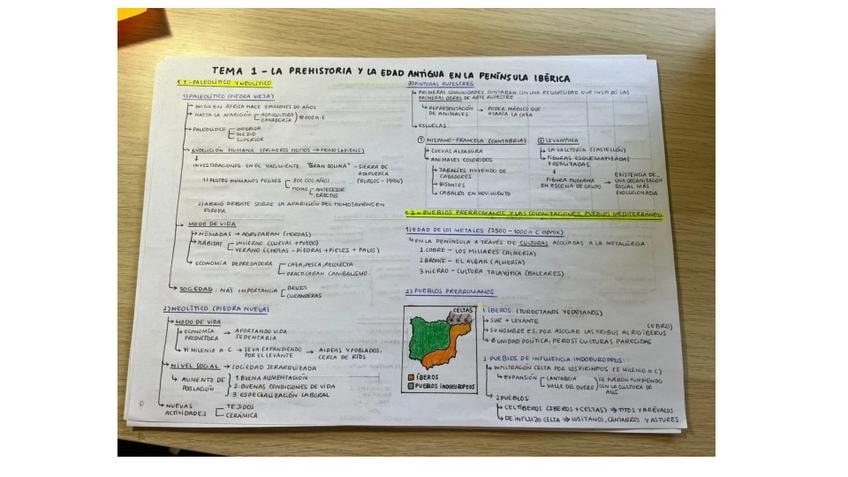 TEMA 1 - LA PREHISTORIA Y LA EDAD ANTIGUA EN LA PENÍNSULA IBÉRICA
1.1 - PALEOLÍTICO Y NEOLÍTICO
1) PALEOLÍTICO (PIEDRA VIEJA)
INICIO EN ÁFRICA HACE 5 MILLONES DE AÑOS
HASTA LA APARICIÓN AGRICULTURA
GANADERÍA
PALEOLÍTICO INFERIOR
MEDIO
SUPERIOR
EVOLUCIÓN HUMANA (PRIMEROS HOMOS → HOMO SAPIENS)
INVESTIGACIONES EN EL YACIMIENTO "GRAN DOLINA" - SIERRA DE
ATAPUERCA
(BURGOS - 1994)
1) RESTOS HUMANOS FÓSILES 800.000 AÑOS
HOMO ANTECESSOR
2) ABRIÓ DEBATE SOBRE LA APARICIÓN DEL HOMO SAPIENS EN
EUROPA
MODO DE VIDA
NÓMADAS → AGRUPABAN (HORDAS)
HÁBITAT INVIERNO (CUEVAS + FUEGO)
VERANO (CHOZAS - PIEDRAS + PIELES + PALOS)
ECONOMÍA DEPREDADORA CAZA, PESCA, RECOLECTA
PRACTICABAN CANIBALISMO
SOCIEDAD: MÁS IMPORTANCIA BRUJOS
CURANDERAS
2) NEOLÍTICO (PIEDRA NUEVA)
MODO DE VIDA
ECONOMÍA PRODUCTORA → APORTANDO VIDA
SEDENTARIA
VI MILENIO A.C → SE VA EXPANDIENDO
POR EL LEVANTE → ALDEAS Y POBLADOS,
CERCA DE RÍOS
NIVEL SOCIAL → SOCIEDAD JERARQUIZADA
AUMENTO DE
POBLACIÓN
1. BUENA ALIMENTACIÓN
2. BUENAS CONDICIONES DE VIDA
3. ESPECIALIZACIÓN LABORAL
NUEVAS
ACTIVIDADES TEJIDOS
CERÁMICA
3) PINTURAS RUPESTRES
PRIMERAS COMUNIDADES CONTABAN CON UNA RELIGIOSIDAD QUE INSPIRÓ LAS
PRIMERAS OBRAS DE ARTE RUPESTRE
REPRESENTACIÓN
DE ANIMALES → PODER MÁGICO QUE
ATRAÍA LA CAZA
ESCUELAS:
① HISPANO-FRANCESA (CANTABRIA)
CUEVAS ALTAMIRA
ANIMALES COLORIDOS
JABALÍES HUYENDO DE
CAZADORES
BISONTES
CABALLOS EN MOVIMIENTO
② LEVANTINA
LA VALLTORTA (CASTELLÓN)
FIGURAS ESQUEMATIZADAS
Y ESTILIZADAS
FIGURA HUMANA
EN ESCENA DE GRUPO → EXISTENCIA DE
UNA ORGANIZACIÓN
SOCIAL MÁS
EVOLUCIONADA
1.2 - PUEBLOS PRERROMANOS Y LAS COLONIZACIONES PUEBLOS MEDITERRÁNEO
1) EDAD DE LOS METALES (2500 - 1000 A.C aprox)
EN LA PENÍNSULA A TRAVÉS DE CULTURAS ASOCIADAS A LA METALURGIA:
1. COBRE - LOS MILLARES (ALMERÍA)
2. BRONCE - EL ALGAR (ALMERÍA)
3. HIERRO - CULTURA TALAYÓTICA (BALEARES)
2) PUEBLOS PRERROMANOS
CELTAS
ÍBEROS
PUEBLOS INDOEUROPEOS
1 ÍBEROS (TURDETANOS Y EDETANOS)
SUR + LEVANTE
SU NOMBRE ES POR ASOCIAR LAS TRIBUS AL RÍO IBERUS
(EBRO)
UNIDAD POLÍTICA, PERO SÍ CULTURAS PARECIDAS
2 PUEBLOS DE INFLUENCIA INDOEUROPEOS:
INFILTRACIÓN CELTA POR LOS PIRINEOS (I MILENIO A.C)
EXPANSIÓN CANTABRIA
VALLE DEL DUERO SE FUERON FUNDIENDO
CON LA CULTURA DE
ALLÍ
2 PUEBLOS
CELTÍBEROS (ÍBEROS + CELTAS) → TITOS Y ARÉVACOS
DE INFLUJO CELTA → LUSITANOS, CÁNTABROS Y ASTURES